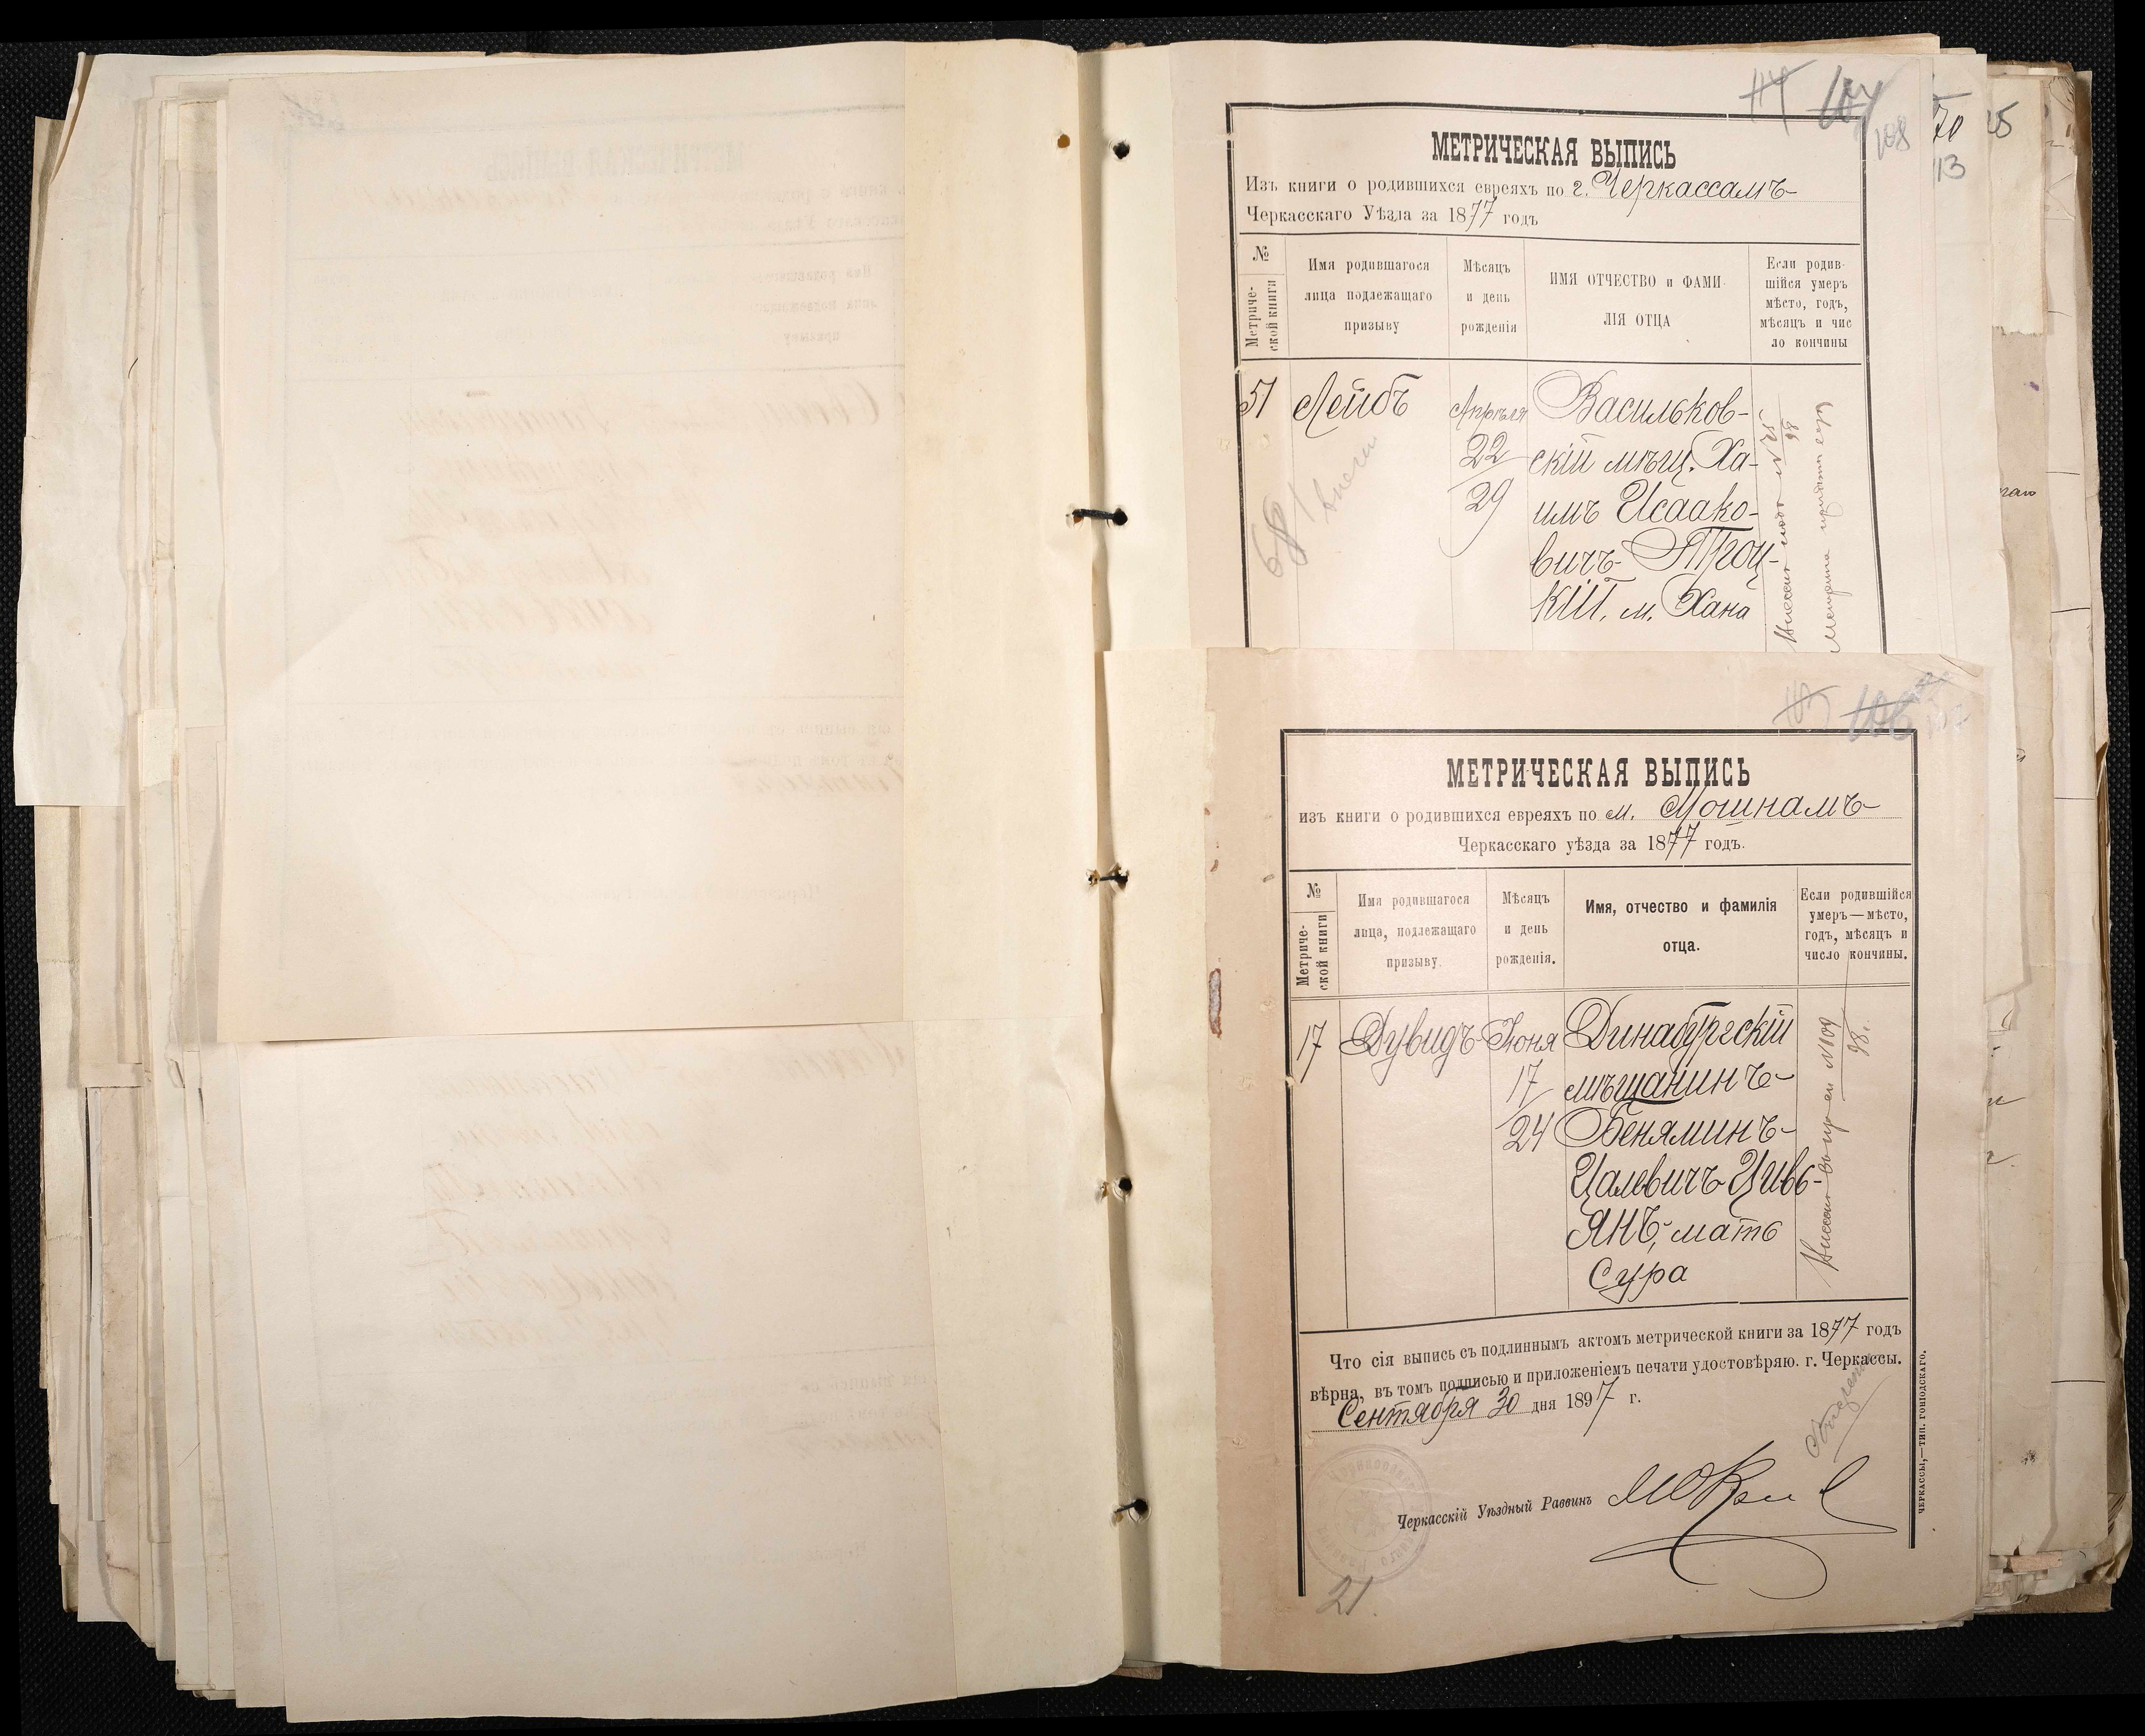 108
МЕТРИЧЕСКАЯ ВЫПИСЬ
Изъ книги о родившихся евреяхъ по г. Черкассамъ
Черкасскаго Уѣзда за 1877 годъ
№
Метриче-
ской книги
Имя родившагося
лица подлежащаго
призыву
Мѣсяцъ
и день
рожденія
ИМЯ ОТЧЕСТВО и ФАМИ-
ЛІЯ ОТЦА
Если родив-
шійся умеръ
мѣсто, годъ,
мѣсяцъ и чис
ло кончины
51 Лейбъ Апрѣля Васильков-
22 скій мѣщ. Ха-
29 имъ Исаако-
вичъ Троц-
кій. м. Хана
68
МЕТРИЧЕСКАЯ ВЫПИСЬ
изъ книги о родившихся евреяхъ по м. Мошнамъ
Черкасскаго уѣзда за 1877 годъ.
№
Метриче-
ской книги
Имя родившагося
лица, подлежащаго
призыву.
Мѣсяцъ
и день
рожденія.
Имя, отчество и фамилія
отца.
Если родившійся
умеръ — мѣсто,
годъ, мѣсяцъ и
число кончины.
17 Дувидъ Іюня Динабургскій
17 мѣщанинъ
24 Беняминъ
Цалевичъ Цивь-
янъ, мать
Сура
№ 109
98 г.
Что сія выпись съ подлиннымъ актомъ метрической книги за 1877 годъ
вѣрна, въ томъ подписью и приложеніемъ печати удостовѣряю. г. Черкассы.
Сентября 30 дня 1897 г.
Черкасскій Уѣздный Раввинъ
21
ЧЕРКАССЫ,—ТИП. ГОНПОДСКАГО.